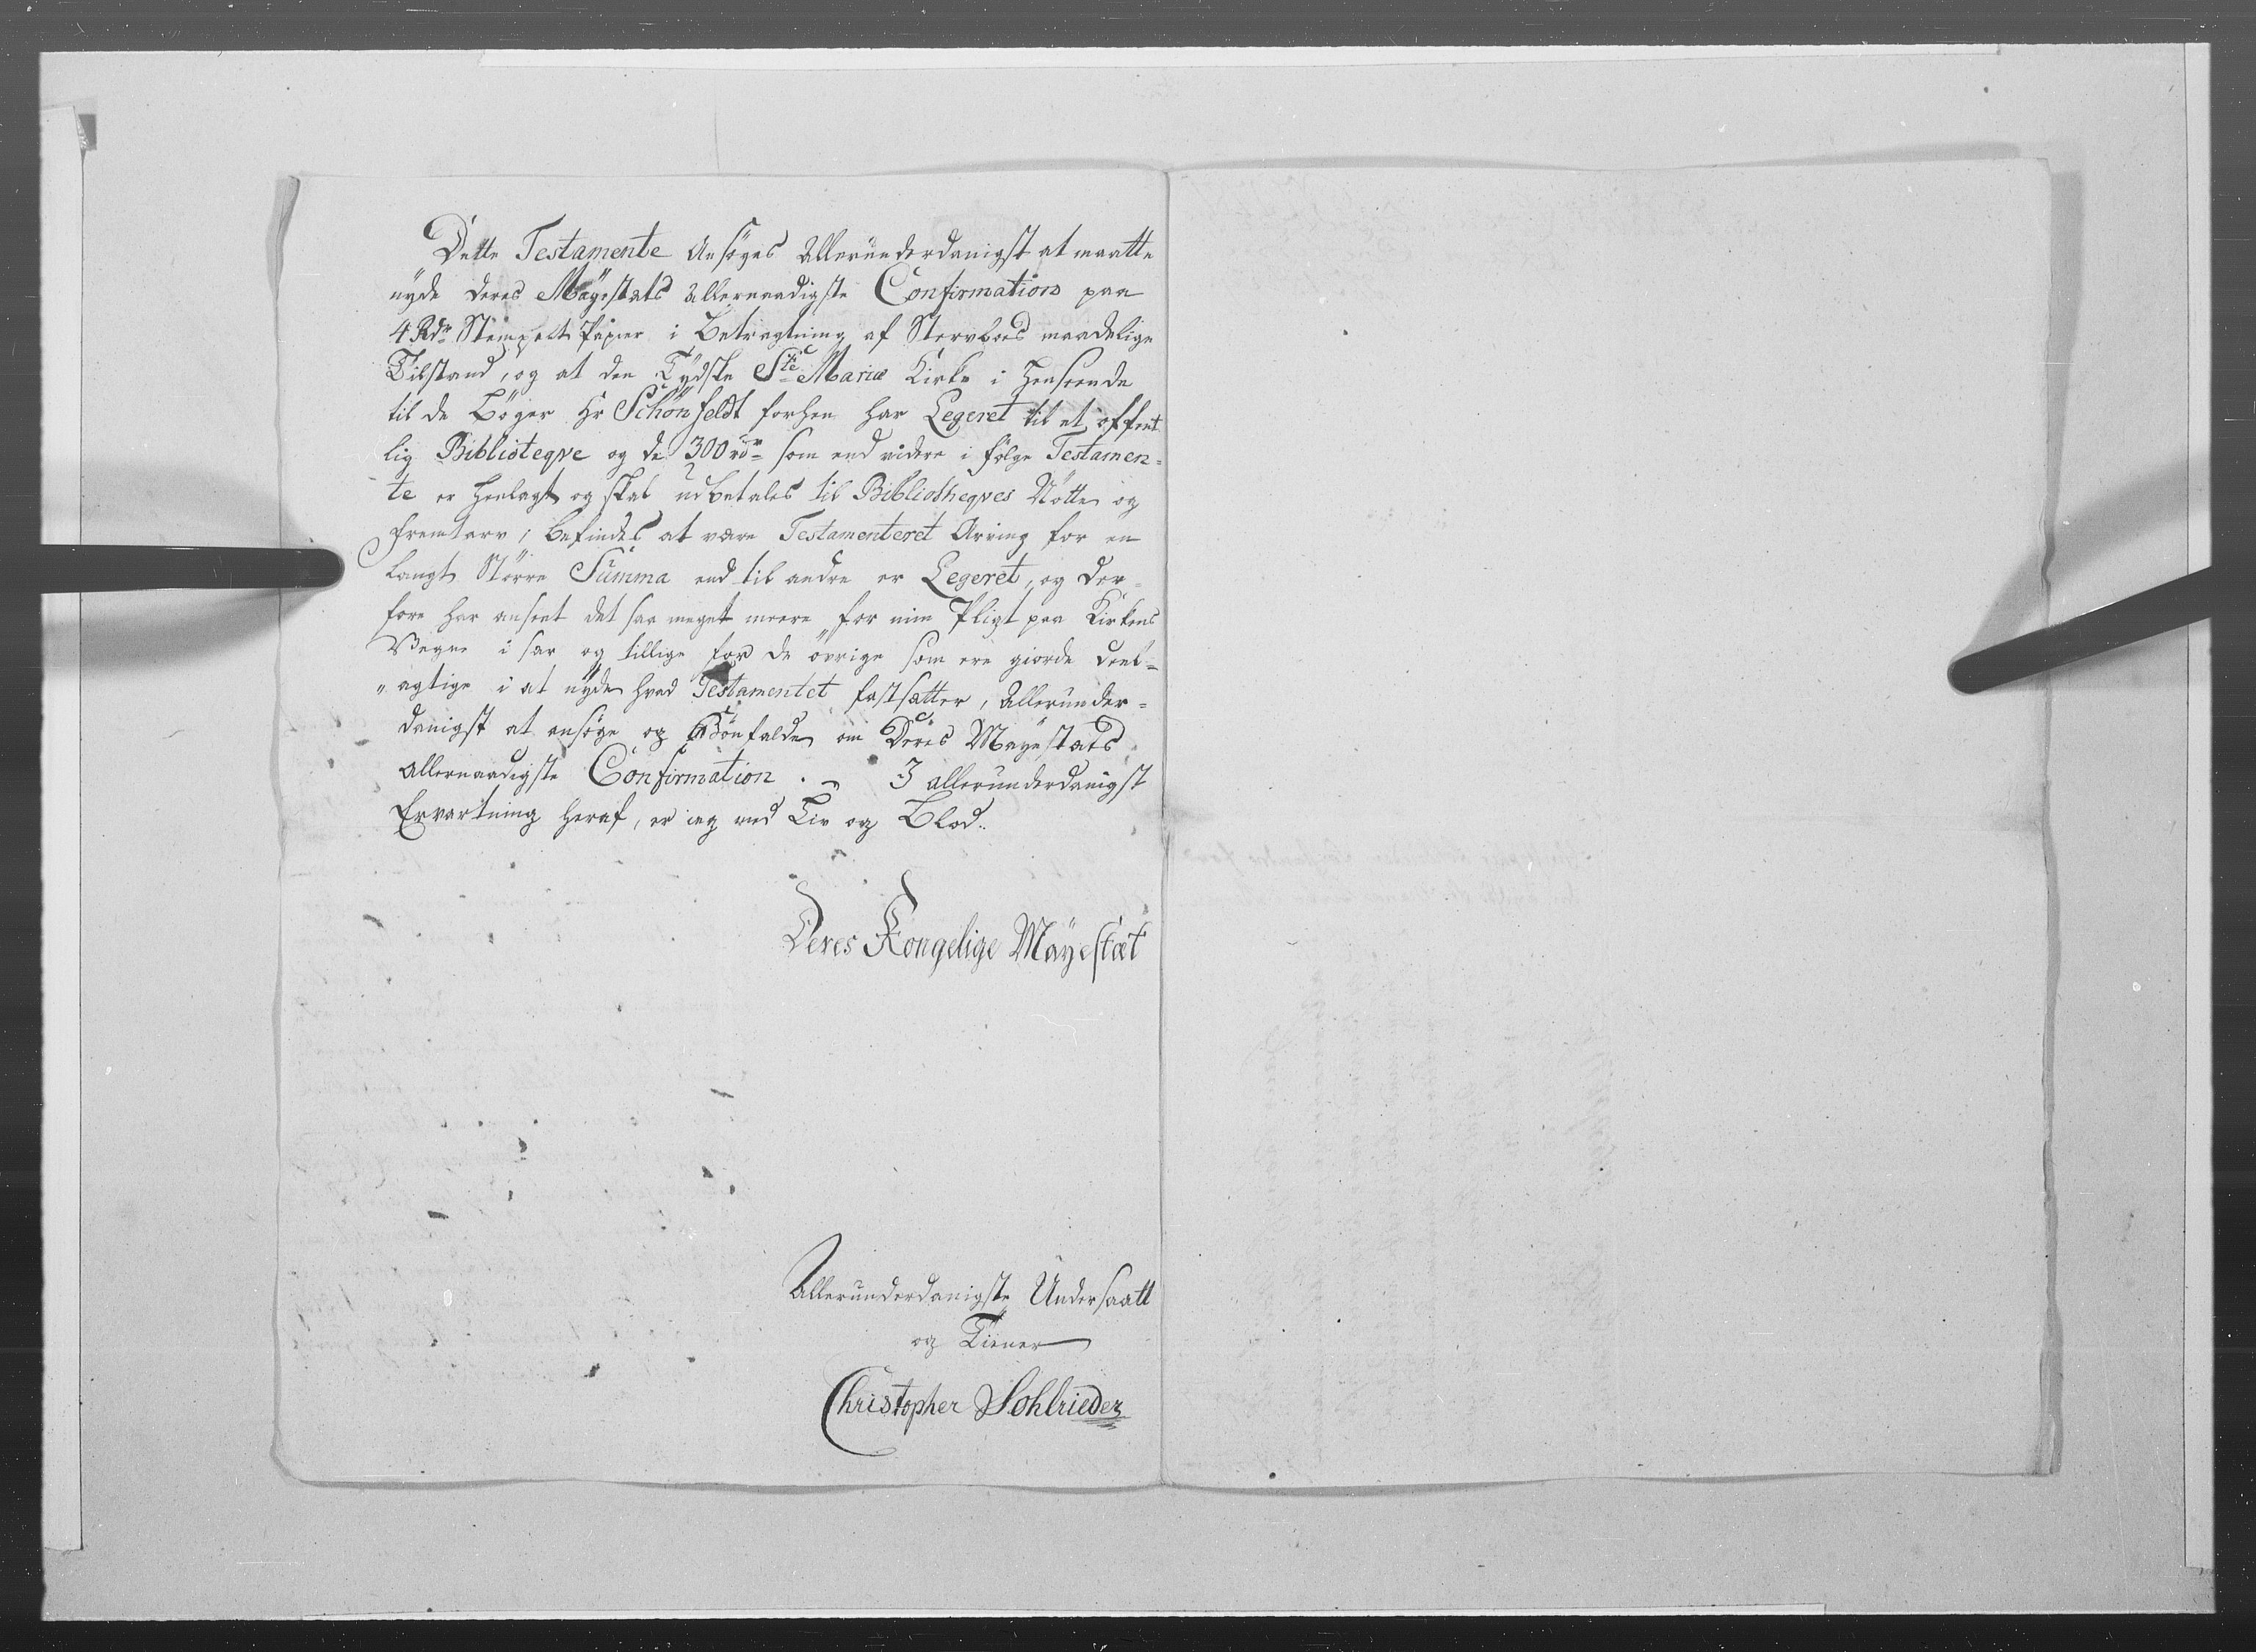 Dette Testamente Ansøges Allerunderdanigst at maatte
nyde Deres Mayestæts Allernaadigste Confirmation paa
4 Rdr Stemplet Papier i Betragtning af Stervboes maadelige
Tilstand, og at den Tydske Ste Mariæ Kirke i Henseende
til de Bøger Hr Schönfeldt forhen har Legeret til et offent
lig Biblioteqve og de 300 rdr som end videre i følge Testamen=
te er Henlagt og skal udbetales til Bibliotheqves Nøtte og
Fremtarv, befindes at være Testamenteret Arving for en
langt Större Summa end til andre er Legeret, og der=
fore har anseet det saa meget meere for min Pligt paa Kirkens
Vegne i sær og tillige for de övrige som ere giorde deel=
„agtige i at nyde hvad Testamentet fastsætter, Allerunder=
danigst at ansøge og Bönfalde om Deres Mayestæts
Allernaadigste Confirmation. – I allerunderdanigst
Forvartning heraf, er ieg med Liv og Blod.
Deres Kongelige Mayestæt
Allerunderdanigste Undersaatt
og Tiener
Christopher Sohlrieder